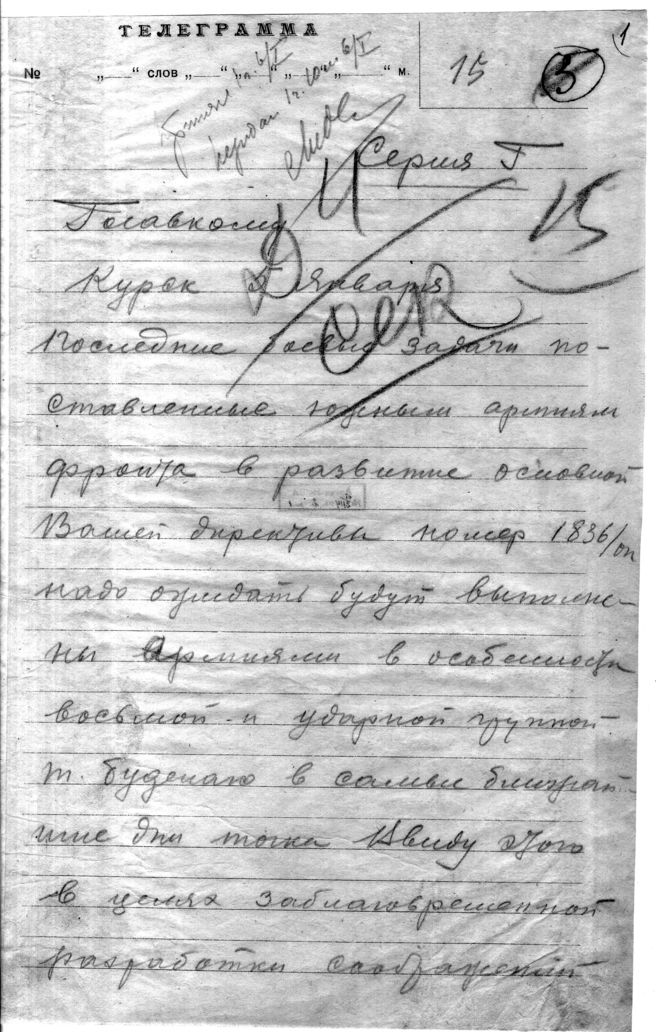 1
ТЕЛЕГРАММА
№ „ “ слов „ “ „ “ „ “ м.
15 5
6/I
6/I
Серия Г
15
Главкому
Курск 5 Января
Последние боевые задачи по-
ставленные южным армиям
фронта в развитие основной
Вашей директивы номер 1836/оп
надо ожидать будут выполне-
ны Армиями в особенности
восьмой и ударной группой
т. Буденаго в самые ближай-
шие дни точка Ввиду этого
в целях заблаговременной
разработки соображений